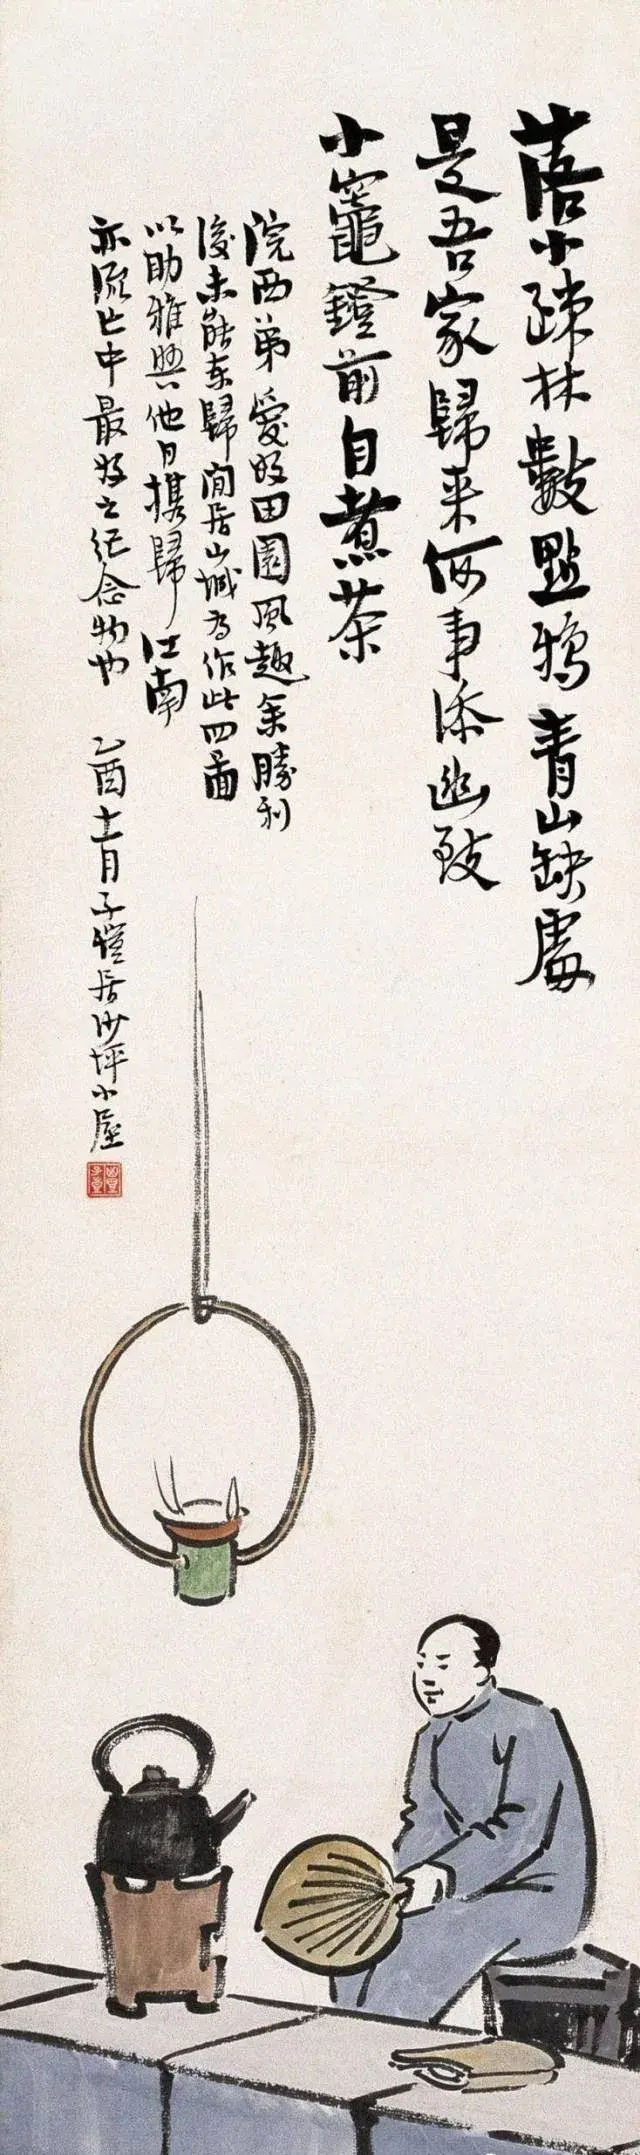 落小疎林數點鴉青山缺處
是吾家歸来何事添幽致
小竈鐙前自煮茶
院西弟愛好田園風趣余勝利
後未能東歸閒居山城為作此四圖
以助雅興他日攜歸江南
亦流亡中最好之紀念物也 乙酉十一月子愷居沙坪小屋